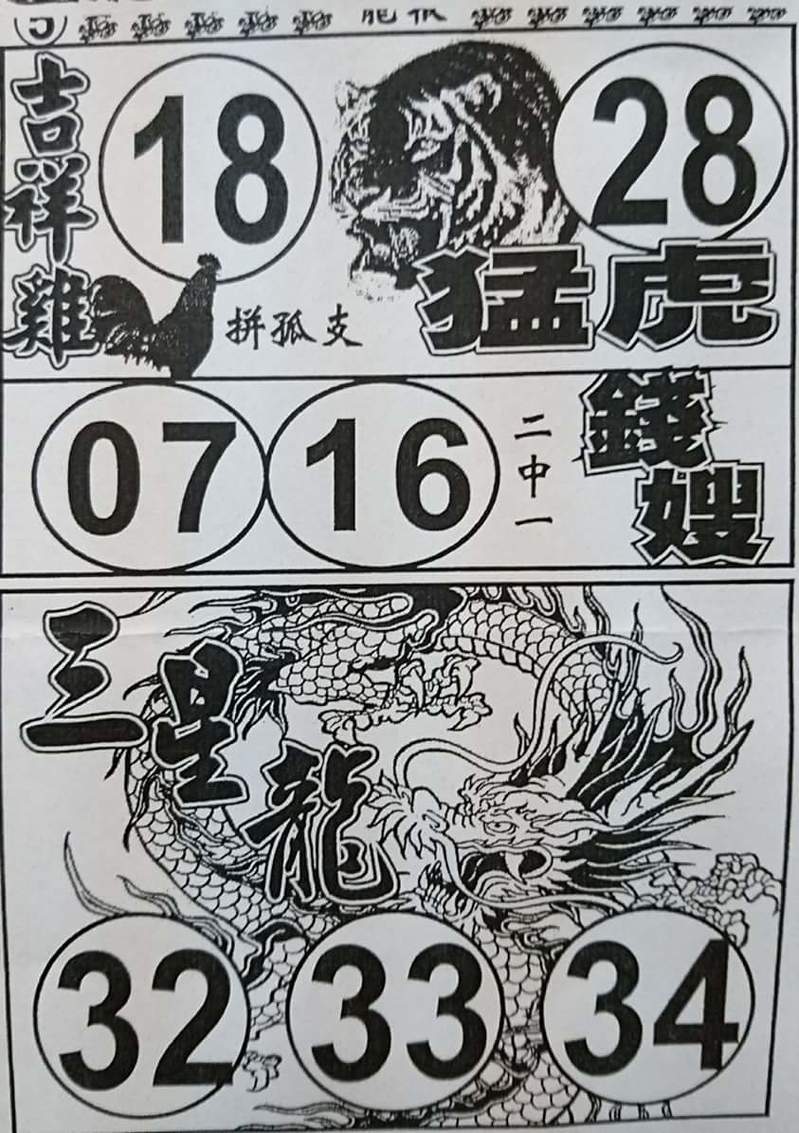 吉祥雞
18
拼孤支
28
猛虎
07
16
二中一
錢嫂
三星龍
32
33
34